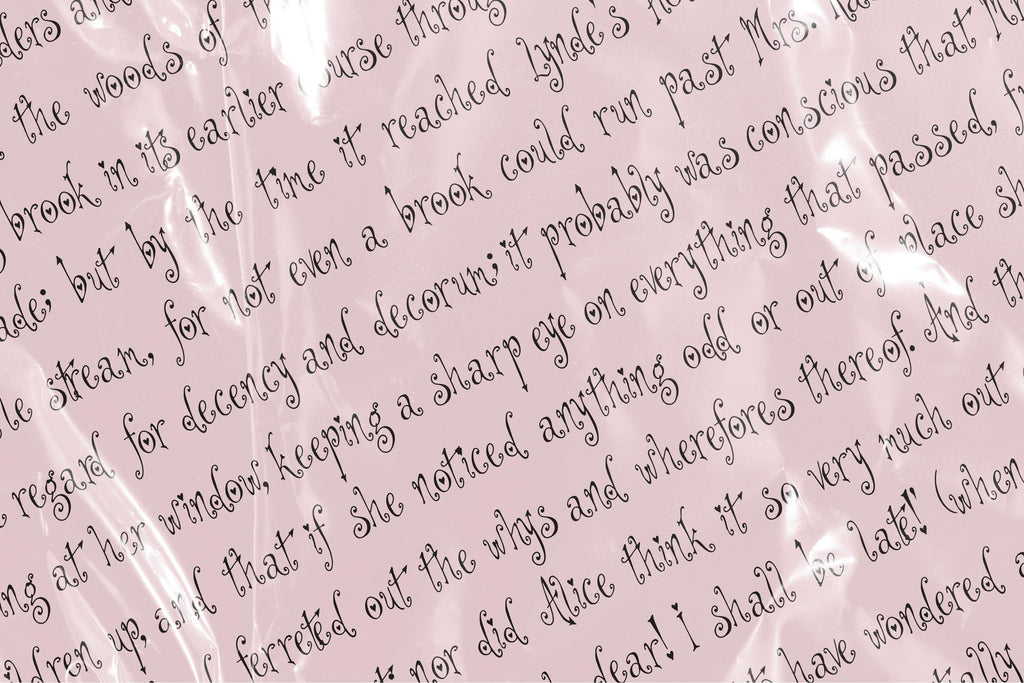 ders and
the woods of t
brook in its earlier course throug
ade; but by the time it reached Lynde's Ho
le stream, for not even a brook could run past Mrs. Ra
regard for decency and decorum; it probably was conscious that M
ng at her window, keeping a sharp eye on everything that passed, f
ldren up, and that if she noticed anything odd or out of place sh
ferreted out the whys and wherefores thereof. And th
nor did Alice think it so very much out
dear! I shall be late!" (when
have wondered a
tally